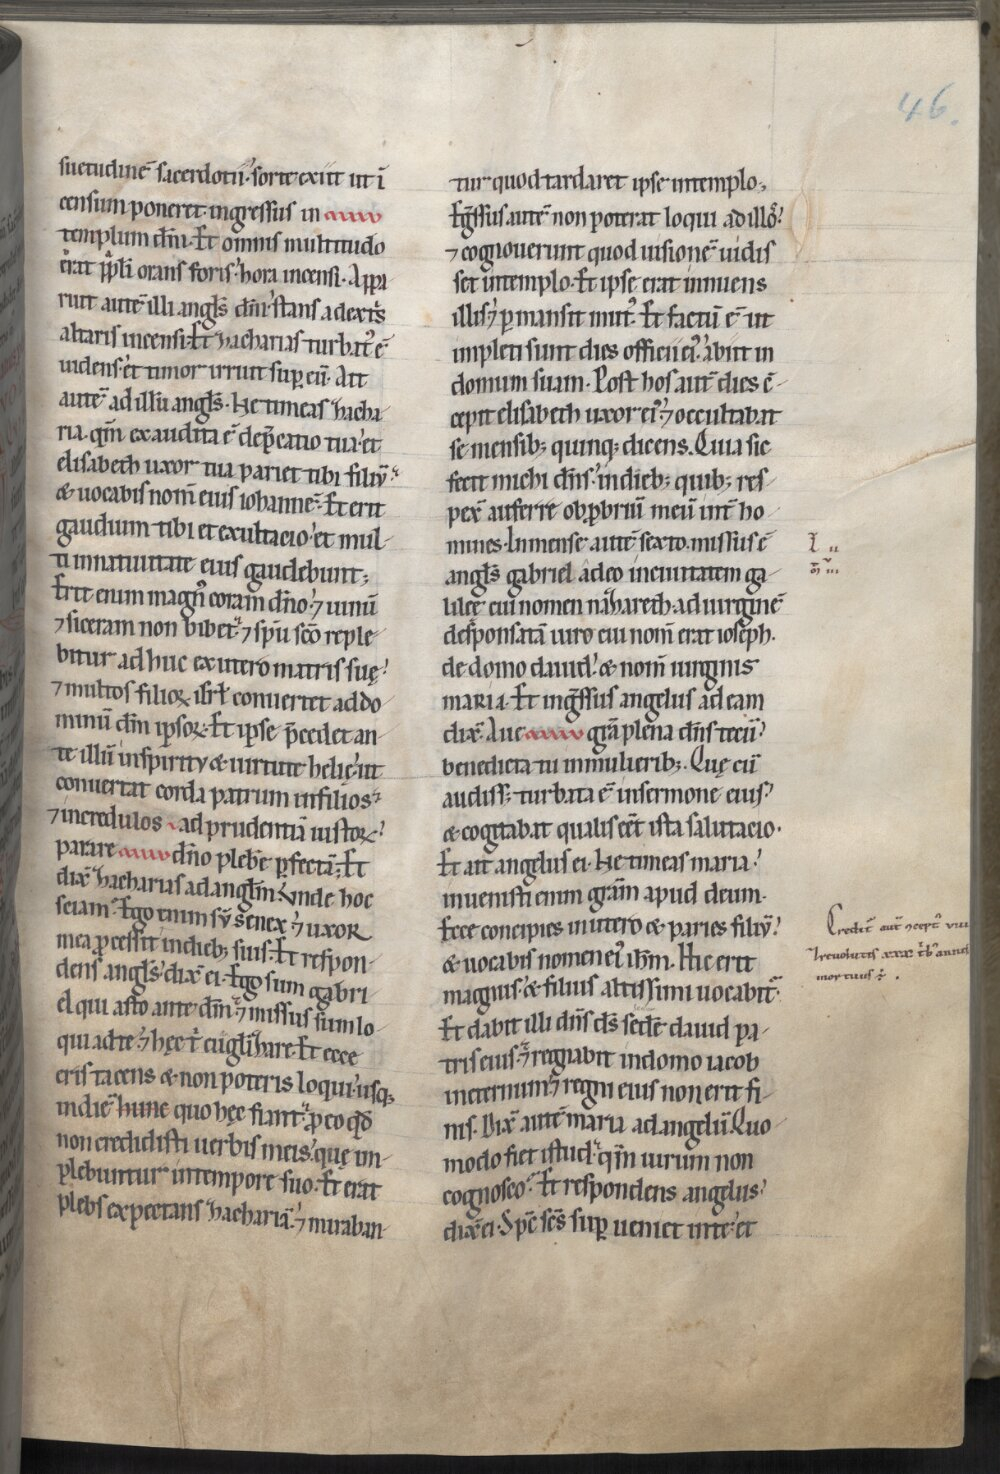 46.
suetudinē sacerdotii. sorte exiit ut ī
censum poneret. ingressus in
templum dñi. Et omnis multitudo
erat ppli orans foris hora incensi. Appa
ruit autē illi angls dñi stans a dextris
altaris incensi. Et zacharias turbat' ē
uidens et timor irruit sup eū. Ait
autē ad illū angls. Ne timeas zacha
ria. qm̄ exaudita ē dep̄catio tua et
elisabeth uxor tua pariet tibi filiū
& uocabis nom̄ eius iohannē. Et erit
gaudium tibi et exultacio et mul-
ti in natiuitate eius gaudebunt;
Erit enim magn' coram dño ⁊ uinū
⁊ siceram non bibet ⁊ spū scō reple-
bitur adhuc ex utero matris suę
⁊ multos filioꝝ isrł conuertet ad do-
minū dm̄ ipsoꝝ. Et ipse p̄cedet an-
te illū in spiritu & uirtute helię ut
conuertat corda patrum in filios
⁊ incredulos ad prudentiā iustoꝝ
parare dño plebē pfectā; Et
dix̄ zacharias ad anglm̄ Vnde hoc
sciam. Ego enim sū senex ⁊ uxor
mea pcessit in dieb; suis. Et respon-
dens angls dix̄ ei. Ego sum gabri-
el qui asto ante dm̄ ⁊ missus sum lo-
qui ad te ⁊ hęc t' euglizare. Et ecce
eris tacens & non poteris loqui usq;
in diē hunc quo hęc fiant p eo qd
non credidisti uerbis meis quę im-
plebuntur in tempore suo. Et erat
plebs expectans zachariā ⁊ miraban-
tur quod tardaret ipse in templo;
Egssus autē non poterat loqui ad illos
⁊ cognouerunt quod uisionē uidis
set in templo. Et ipse erat innuens
illis ⁊ pmansit mut'. Et factū ē ut
impleti sunt dies officii ei' abiit in
domum suam. Post hos aut dies c-
cepit elisabeth uxor ei' ⁊ occultabat
se mensib; quinq; dicens. Quia sic
fecit michi dñs in dieb; quib; res-
pex̄ auferre obpbriū meū int ho-
mines. In mense autē sexto. missus ē
angls gabriel a deo in ciuitatem ga-
lilęę cui nomen nazareth. ad uirginē
desponsatā uiro cui nom̄ erat ioseph.
de domo dauid & nom̄ uirginis
maria. Et ingssus angelus ad eam
dix̄. Aue gr̄a plena dñs tecū
benedicta tu in mulierib;. Quę cū
audiss; turbata ē in sermone eius
& cogitabat qualis eēt ista salutacio.
Et ait angelus ei. Ne timeas maria
inuenisti enim gr̄am apud deum.
Ecce concipies in utero & paries filiū
& uocabis nomen ei' ihm̄. Hic erit
magnus & filius altissimi uocabit'
Et dabit illi dñs ds sedē dauid pa-
tris eius ⁊ regnabit in domo iacob
in eternum ⁊ regni eius non erit fi-
nis. Dix̄ autē maria ad angelū. Quo-
modo fiet istud qm̄ uirum non
cognosco. Et respondens angelus
dix̄ ei. Spc scs sup ueniet in te et
Credit' aut
mortuus